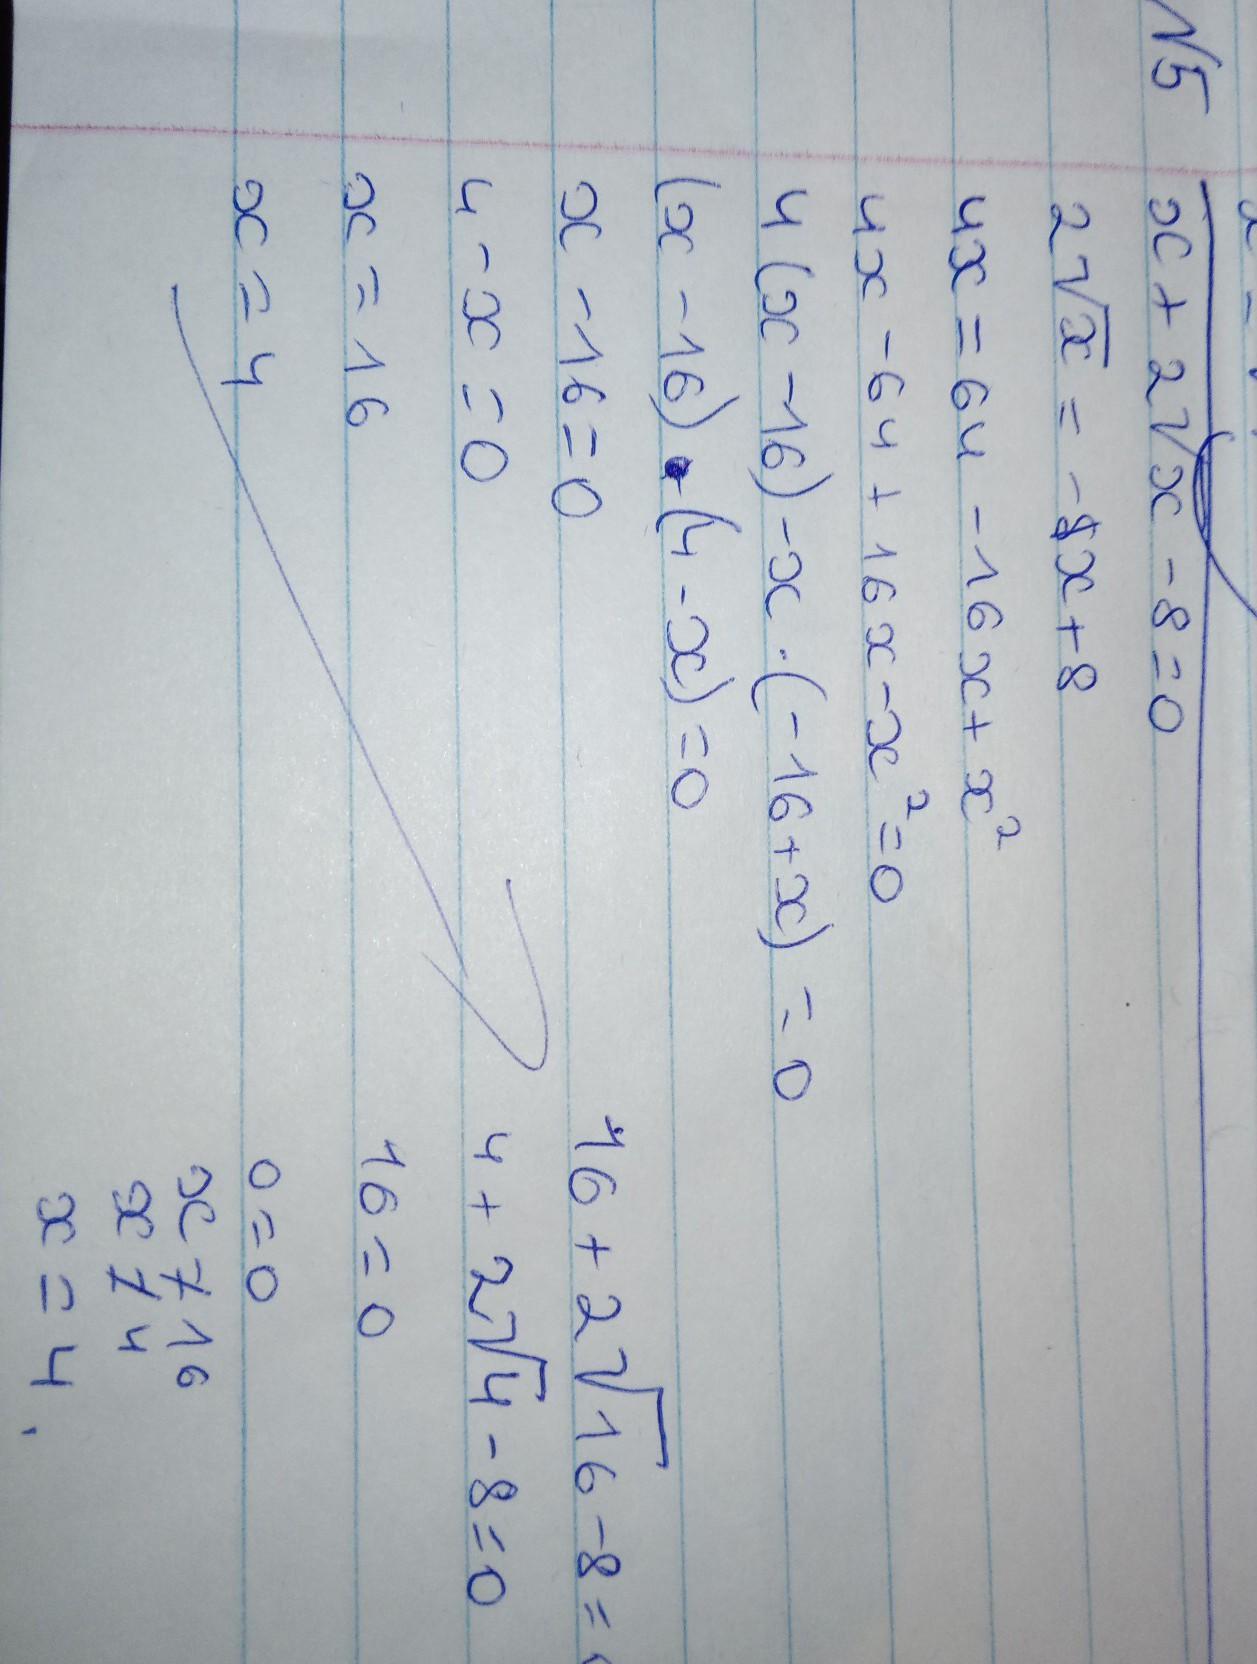 №5
x + 2√x - 8 = 0
2√x = -x + 8
4x = 64 - 16x + x²
4x - 64 + 16x - x² = 0
4(x - 16) - x · (-16 + x) = 0
(x - 16) · (4 - x) = 0
x - 16 = 0
4 - x = 0
x = 16
x = 4
16 + 2√16 - 8 = 0
4 + 2√4 - 8 = 0
16 = 0
0 = 0
x ≠ 16
x ≠ 4
x = 4